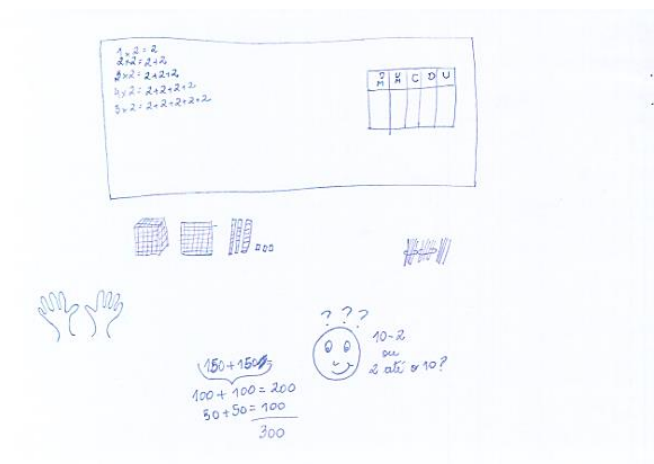 1 x 2 = 2
2 x 2 = 2+2
3 x 2 = 2+2+2
4 x 2 = 2+2+2+2
5 x 2 = 2+2+2+2+2
D M U M C D U
? ? ?
10-2
ou
2 até o 10?
150 + 150
100 + 100 = 200
50 + 50 = 100
300